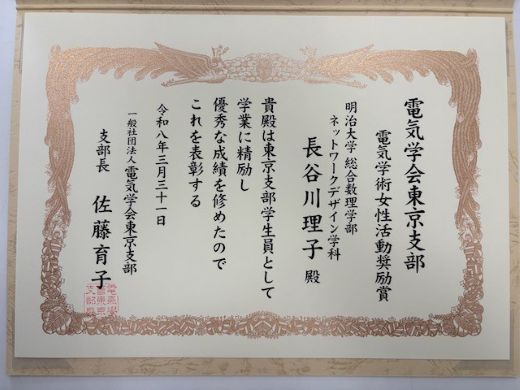 電気学会東京支部
電気学術女性活動奨励賞
明治大学 総合数理学部
ネットワークデザイン学科
長谷川理子 殿
貴殿は東京支部学生員として
学業に精励し
優秀な成績を修めたので
これを表彰する
令和八年三月三十一日
一般社団法人 電気学会東京支部
支部長 佐藤育子